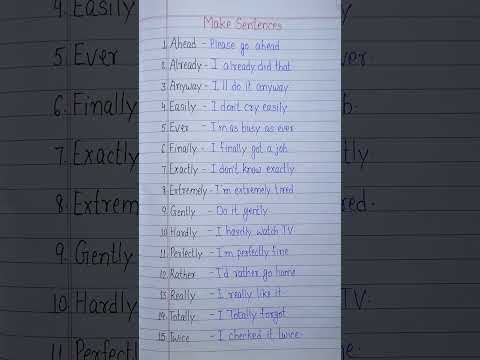 Make Sentences
1 Ahead - Please go ahead
2 Already - I already did that
3 Anyway - I'll do it anyway
4 Easily - I don't cry easily
5 Ever - I'm as busy as ever
6 Finally - I finally got a job
7 Exactly - I don't know exactly
8 Extremely - I'm extremely tired
9 Gently - Do it gently
10 Hardly - I hardly watch TV
11 Perfectly - I'm perfectly fine
12 Rather - I'd rather go home
13 Really - I really like it
14 Totally - I Totally forgot
15 Twice - I checked it twice
4. Easily
5. Ever
6. Finally
7. Exactly
8. Extrem
9. Gently
10. Hardly
11 Perfec
b.
tly
red.
TV.